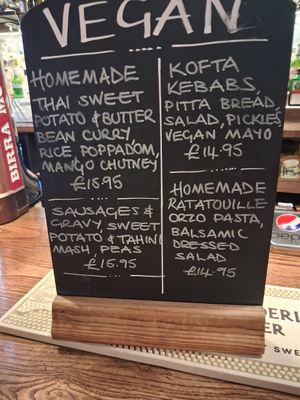 VEGAN
HOMEMADE
THAI SWEET
POTATO & BUTTER
BEAN CURRY,
RICE, POPPADOM,
MANGO CHUTNEY
£15.95
SAUSAGES &
GRAVY, SWEET
POTATO & TAHINI
MASH, PEAS
£15.95
KOFTA
KEBABS,
PITTA BREAD,
SALAD, PICKLES
VEGAN MAYO
£14.95
HOMEMADE
RATATOUILLE
ORZO PASTA,
BALSAMIC
DRESSED
SALAD
£14.95
BIRRA M
pepsi
SWE